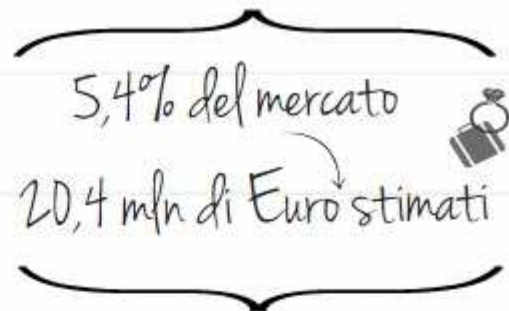 5,4% del mercato
20,4 mln di Euro stimati